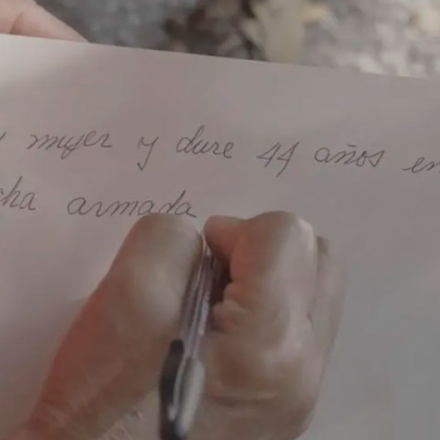 y mujer y dure 44 años en
cha armada